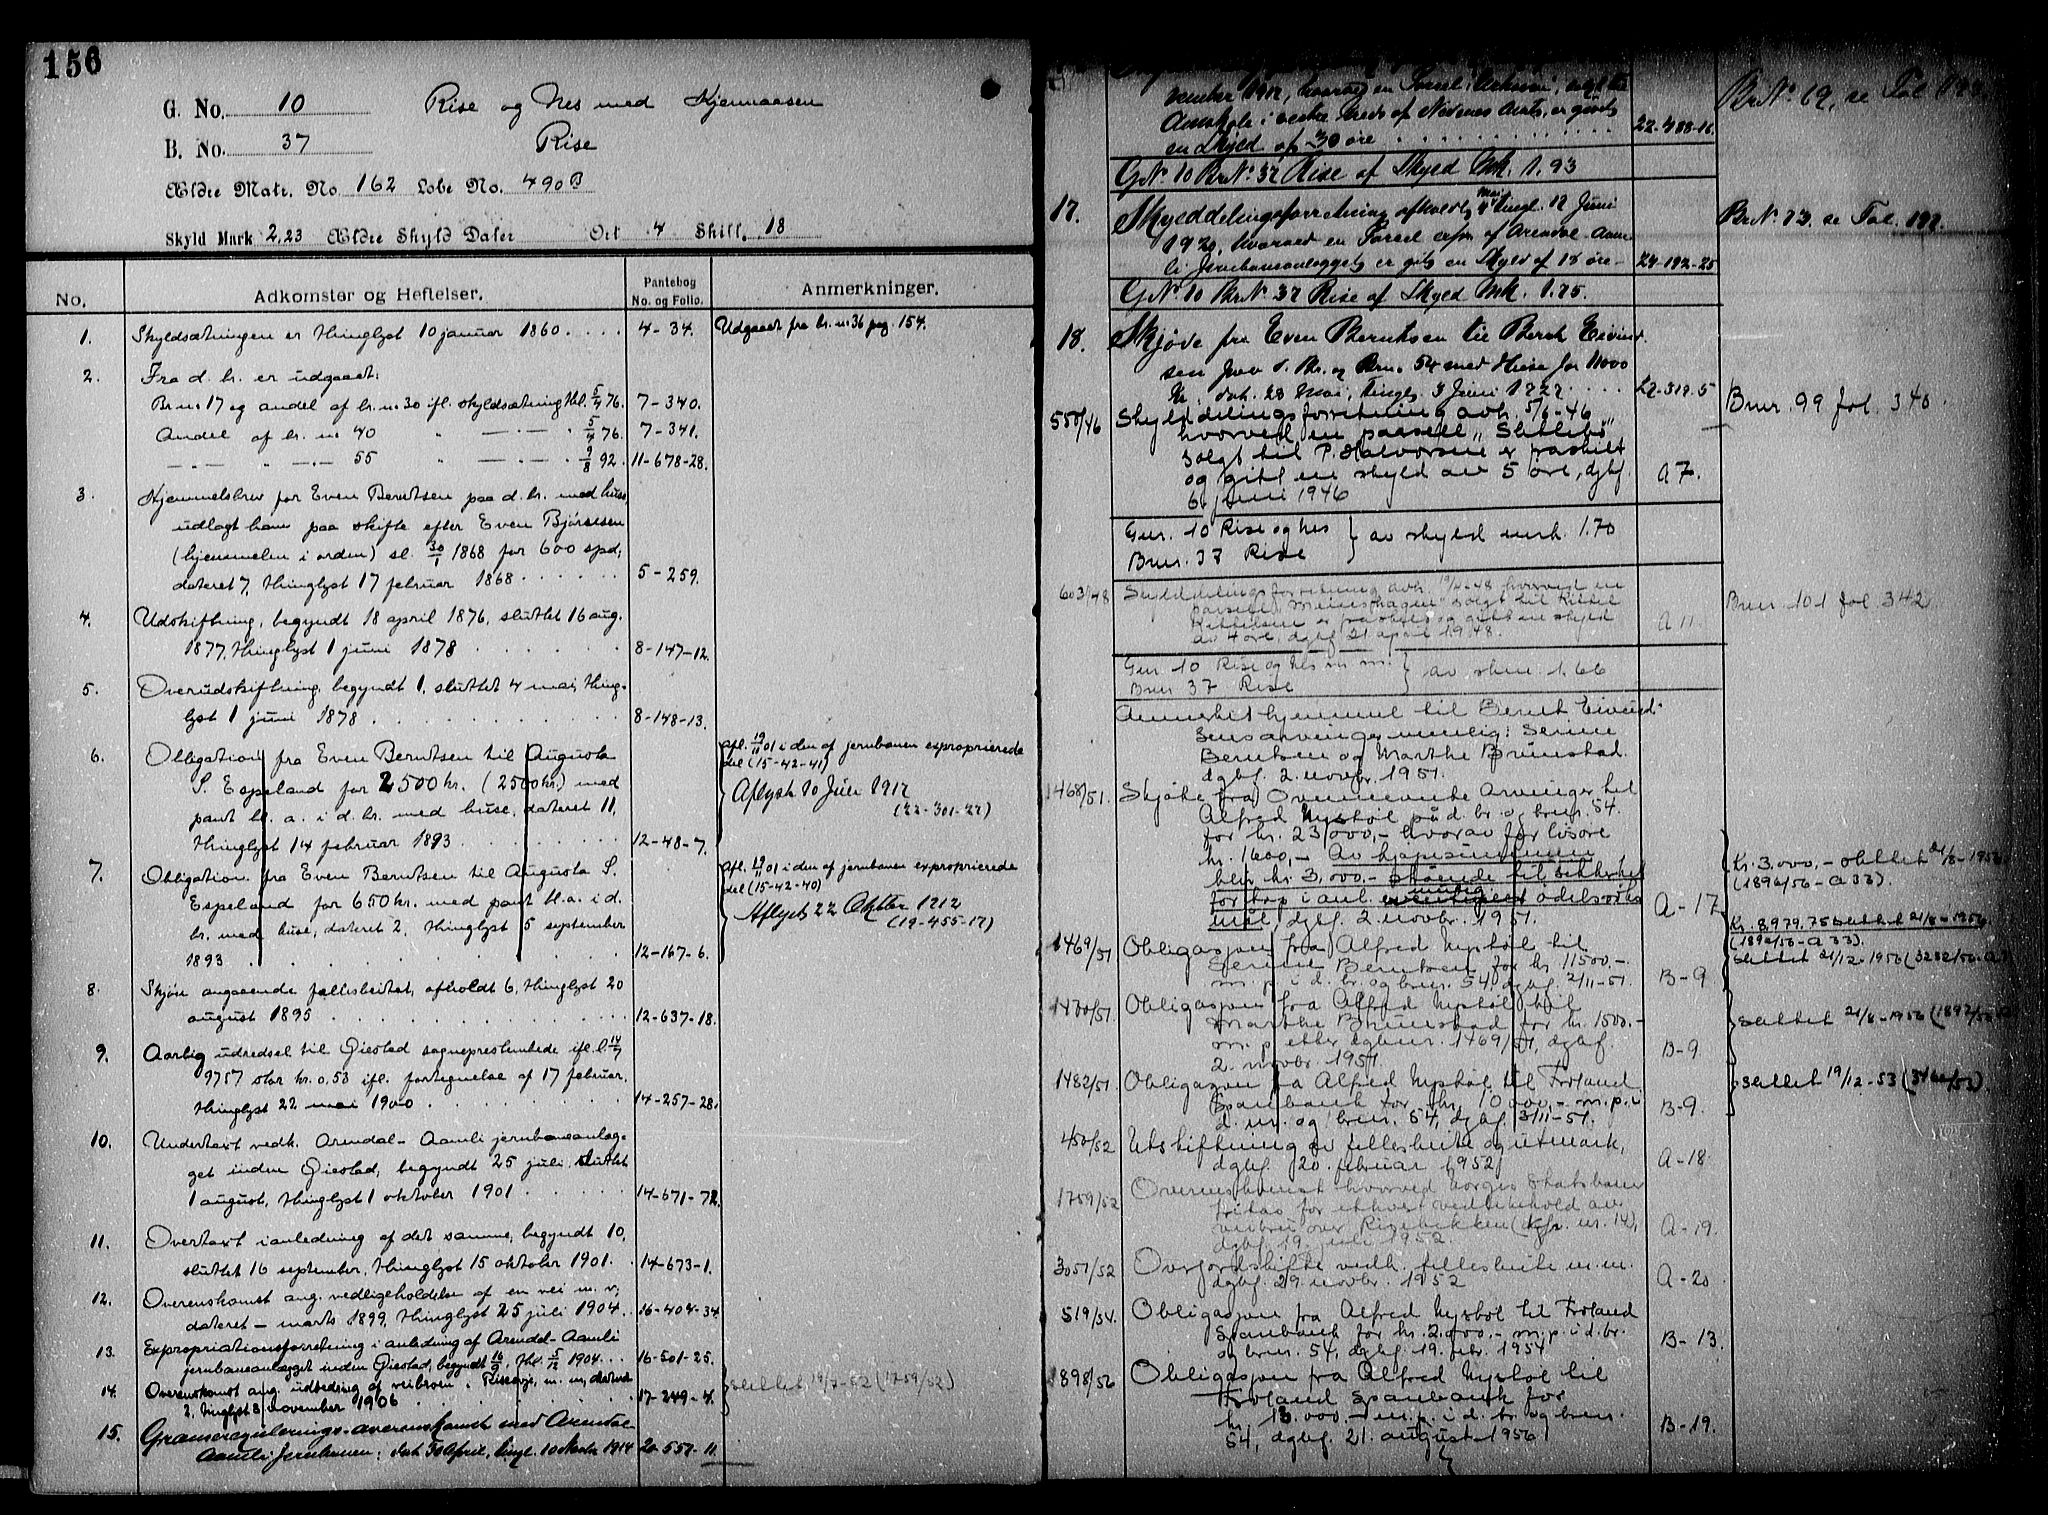 156
G. No. 10 Rise og Nes med Hjermaasen
B. No. 37 Rise
Ældre Matr. No. 162 Løbe No. 490 B
Skyld Mark 2,23 Ældre Skyld Daler Ort 4 Skill. 18
No. Adkomster og Heftelser. Pantebog No. og Folio. Anmerkninger.
1. Skyldsætningen er thinglyst 10 januar 1860 . . . . 4-34. Udgaaet fra br. n. 36 pag. 154.
2. Fra d. br. er udgaaet:
Br. n. 17 og andel af br. n. 30 ifl. skyldsætning thl. 5/4 76. 7-340.
Andel af br. n. 40 " —.— . 5/4 76. 7-341.
—.— " —.— 55 " —.— . 9/8 92. 11-678-28.
3. Hjemmelsbrev for Even Berntsen paa d. br. med huse
udlagt ham paa skifte efter Even Bjørnsen
(hjemmelen i orden) sl. 30/1 1868 for 600 spd.,
dateret 7, thinglyst 17 februar 1868 . . . . . . 5-259.
4. Udskiftning, begyndt 18 april 1876, sluttet 16 aug.
1877, thinglyst 1 juni 1878 . . . . . . 8-147-12.
5. Overudskiftning, begyndt 1, sluttet 4 mai, thing-
lyst 1 juni 1878 . . . . . . . . 8-148-13.
6. Obligation fra Even Berntsen til Augusta
S. Espeland for 2500 kr. (2500 kr.) med
pant bl. a. i d. br. med huse, dateret 11,
thinglyst 14 februar 1893 . . . . . . 12-48-7.
afl. 19/11 01 i den af jernbanen exproprierede
del (15-42-41)
Aflyst 10 Juli 1917
(22-301-27)
7. Obligation fra Even Berntsen til Augusta S.
Espeland for 650 kr. med pant bl. a. i d.
br. med huse, dateret 2, thinglyst 5 september
1893 . . . . . . . . . 12-167-6.
afl. 19/11 01 i den af jernbanen exproprierede
del (15-42-40)
Aflyst 22 Oktbr 1912
(19-455-17)
8. Skjøn angaaende fællesbeitet, afholdt 6, thinglyst 20
august 1895 . . . . . . . . . 12-637-18.
9. Aarlig udredsel til Øiestad sogneprestembede ifl. l. 14/7
9757 stor kr. 0,53 ifl. fortegnelse af 17 februar,
thinglyst 22 mai 1900 . . . . . . . 14-257-28.
10. Undertaxt vedk. Arendal-Aamli jernbaneanlæg-
get inden Øiestad, begyndt 25 juli, sluttet
1 august, thinglyst 1 oktober 1901 . . . . . 14-671-72.
11. Overtaxt i anledning af det samme, begyndt 10,
sluttet 16 september, thinglyst 15 oktober 1901 . . 14-673-1.
12. Overenskomst ang. vedligeholdelse af en vei m. v.,
dateret — marts 1899, thinglyst 25 juli 1904 . . 16-404-34
13. Expropriationsforretning i anledning af Arendal-Aamli
jernbaneanlægget inden Øiestad, begyndt 16/9, thl. 5/12 1904 . . . 16-501-25.
14. Overenskomst ang. udbedring af veibroen i Risevje, m. m., dateret
2, thinglyst 3 november 1906 . . . . 17-249-4. slettet 19/7-52 (1759/52)
15. Grænsereguleringsoverenskomst med Arendal
Aamli Jernbanen, dat 30 April, tingl. 10 Novbr 1914 20-557-11
vember 1917, hvorved en Parsel
Amskole i vestre kreds af Nedenes Amt, er givet
en Skyld af 30 øre . . . . . . . 22-388-16.
Br.Nr. 69, se Fol.
G.Nr. 10 Br.Nr. 37 Rise af Skyld Mk. 1.93
17. Skylddelingsforretning afholdt 4 Mai tingl. 12 Juni
1920, hvorved en Parsel expr. af Arendal-Aam-
li Jernbaneanlegget er gitt en Skyld af 18 øre — 24-192-25
Br.Nr. 73, se Fol. 197.
G.Nr. 10 Br.Nr. 37 Rise af Skyld Mk. 1.75.
18. Skjøte fra Even Berntsen til Bernt Eivind-
sen paa d. Br. og Brn. 54 med Huse for 11000
Kr., dat. 28 Mai, tingl. 3 Juni 1922 . . . . 22-319-5
550/46 Skylddelingsforretning avh. 5/6-46
hvorved en parsell „Slettebø"
solgt til P. Halvorsen er fraskilt
og gitt en skyld av 5 øre, dgbf.
6 juni 1946 A 7.
Bnr. 99 fol. 340.
Gnr. 10 Rise og Nes
Bnr. 37 Rise } av skyld mrk. 1.70
603/48 Skylddelingsforretning avh. 19/4-48 hvorved en
parsell solgt til Kittel
Kittelsen er fraskilt og gitt en skyld
av 4 øre, dgbf. 21. april 1948. A 11.
Bnr. 101 fol. 342
Gnr. 10 Rise og Nes m. m.
Bnr. 37 Rise } av skm. 1.66
Anmerket hjemmel til Bernt Eivind-
sens arvinger nemlig: Serine
Berntsen og Marthe Brunstad.
dgbf. 2. novbr. 1951.
1468/51. Skjøte fra Ovennevnte Arvinger til
Alfred Myrhøl på d. br. og brnr. 54.
for kr. 23000,- hvorav for løsøre
kr. 1600,- Av kjøpesummen
blir kr. 3,000.- stående til sikkerhet
for tap i anl. mulig odelssøks-
mål, dgbf. 2. novbr. 1951. A-17
Kr. 3.000,- slettet 21/8-1956
(1896/56-A 33).
Kr. 8,979,75 slettet 21/8-1956
(1896/56-A 33).
1469/51 Obligasjon fra Alfred Myrhøl til
Serine Berntsen for kr. 11500.-
m. p. i d. br. og brnr. 54, dgbf. 2/11-51. B-9
slettet 21/12-1956
1470/51. Obligasjon fra Alfred Myrhøl til
Marthe Brunstad for kr. 1500.-
m. p. etter dgbnr. 1469/51, dgbf.
2. novbr. 1951. B-9
slettet 21/8-1956
1482/51. Obligasjon fra Alfred Myrhøl til Froland
Sparebank for kr. 10 000,- m. p. i
d. br. og brnr. 54, dgbf. 3/11-51. B-9.
slettet 19/12-53
450/52 Utskiftning av fellesbeite og utmark,
dgbf. 20. februar 1952 A-18
1759/52 Overenskomst hvorved Norges Statsbaner
fritas for ethvert vedlikehold av
veibru over Risebekken (kfr. nr. 14),
dgbf. 19. juli 1952. A-19.
3051/52 Overjordskifte vedk. fellesbeite m. m.
dgbf. 29. novbr. 1952 A-20
519/54. Obligasjon fra Alfred Myrhøl til Froland
Sparebank for kr. 2.000.- m. p. i d. br.
og brnr. 54, dgbf. 19. febr. 1954 B-13.
1898/56 Obligasjon fra Alfred Myrhøl til
Froland Sparebank for
kr. 13.000 - m. p. i d. br. og brnr.
54, dgbf. 21. august 1956 B-19.